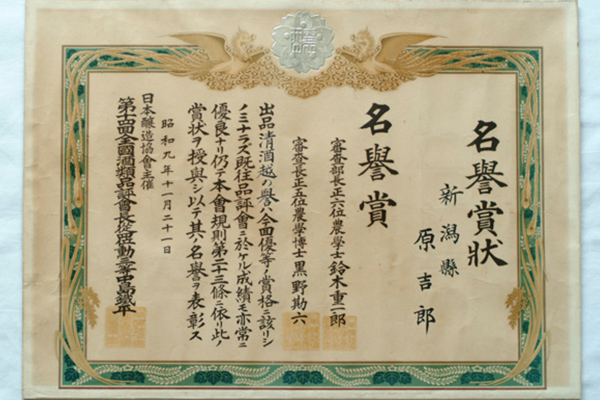 名譽賞状
新潟縣
原吉郎
名譽賞
審查部長正六位農學士鈴木重一郎
審查長正五位農學博士黒野勘六
出品清酒越の譽ハ今回優等ノ賞格ニ該リシ
ノミナラズ既往品評會ニ於ケル成績モ亦常ニ
優良ナリ仍テ本會規則第二十三條ニ依リ此ノ
賞状ヲ授與シ以テ其ノ名譽ヲ表彰ス
昭和九年十一月二十一日
日本釀造協會主催
第十四回全國酒類品評會長從四位勳三等中島鐵平